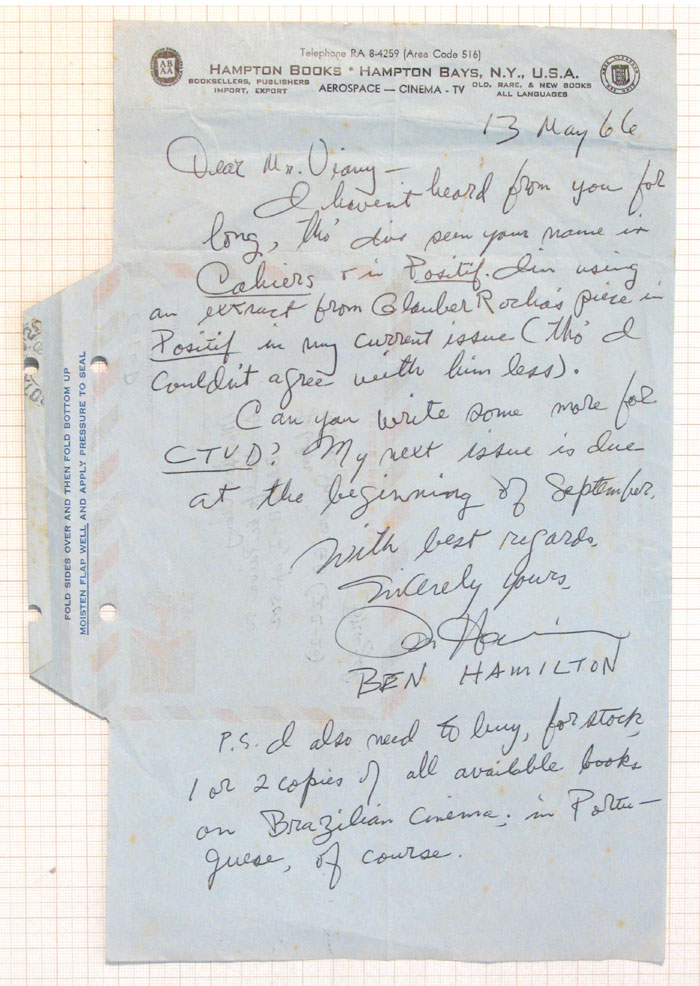 Telephone RA 8-4259 (Area Code 516)
AB
AA
HAMPTON BOOKS • HAMPTON BAYS, N.Y., U.S.A.
BOOKSELLERS, PUBLISHERS
IMPORT, EXPORT
AEROSPACE — CINEMA - TV
OLD, RARE, & NEW BOOKS
ALL LANGUAGES
13 May 66
Dear Mr. Viany—
I haven't heard from you for
long, tho' I've seen your name in
Cahiers & in Positif. I'm using
an extract from Glauber Rocha's piece in
Positif in my current issue (tho' I
couldn't agree with him less).
Can you write some more for
CTVD? My next issue is due
at the beginning of September.
With best regards,
Sincerely yours,
BEN HAMILTON
P.S. I also need to buy, for stock,
1 or 2 copies of all available books
on Brazilian cinema; in Portu-
guese, of course.
FOLD SIDES OVER AND THEN FOLD BOTTOM UP
MOISTEN FLAP WELL AND APPLY PRESSURE TO SEAL